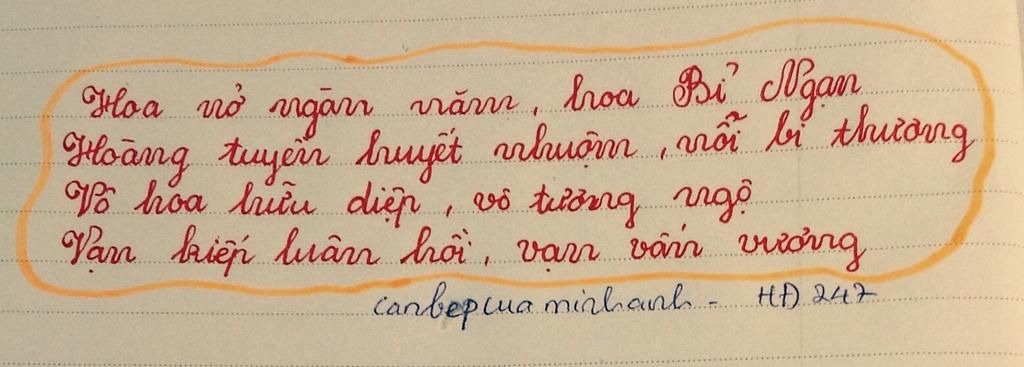 Hoa nở ngàn năm, hoa Bỉ Ngạn
Hoàng tuyền huyết nhuộm, nỗi bi thương
Vô hoa hữu diệp, vô tương ngộ
Vạn kiếp luân hồi, vạn vấn vương
canbepcuaminhanh - HĐ 247